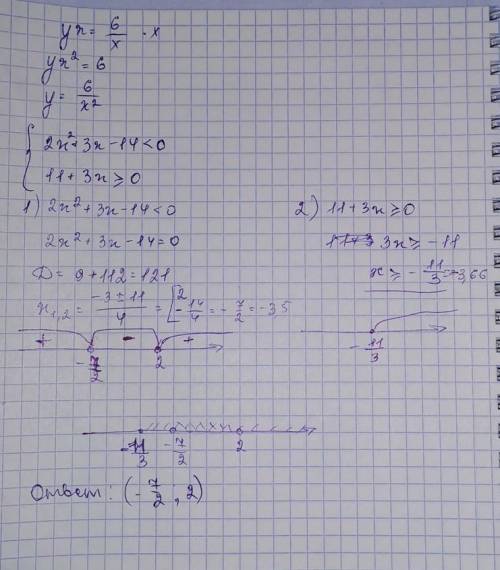 yx = 6/x · x
yx² = 6
y = 6/x²
{ 2x² + 3x - 14 < 0
11 + 3x ≥ 0
1) 2x² + 3x - 14 < 0
2x² + 3x - 14 = 0
D = 9 + 112 = 121
x₁,₂ = (-3 ± 11)/4 = [ 2
-14/4 = -7/2 = -3,5
+ - +
-7/2 2
2) 11 + 3x ≥ 0
3x ≥ -11
x ≥ -11/3 = -3,66
-11/3
-11/3 -7/2 2
Ответ: (-7/2 ; 2)